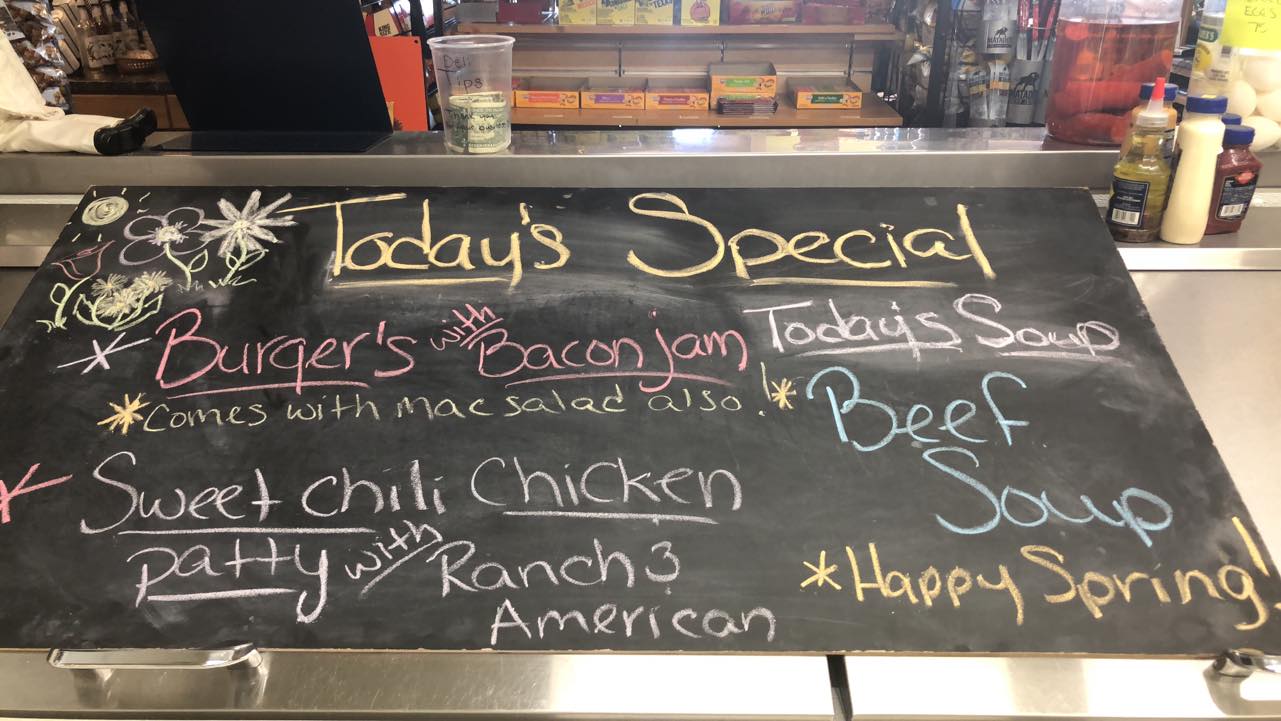 Deli
Tips
EGG'S
Today's Special
* Burger's with Bacon jam
* comes with mac salad also! *
* Sweet chili Chicken
patty with Ranch &
American
Today's Soup
Beef
Soup
* Happy Spring!